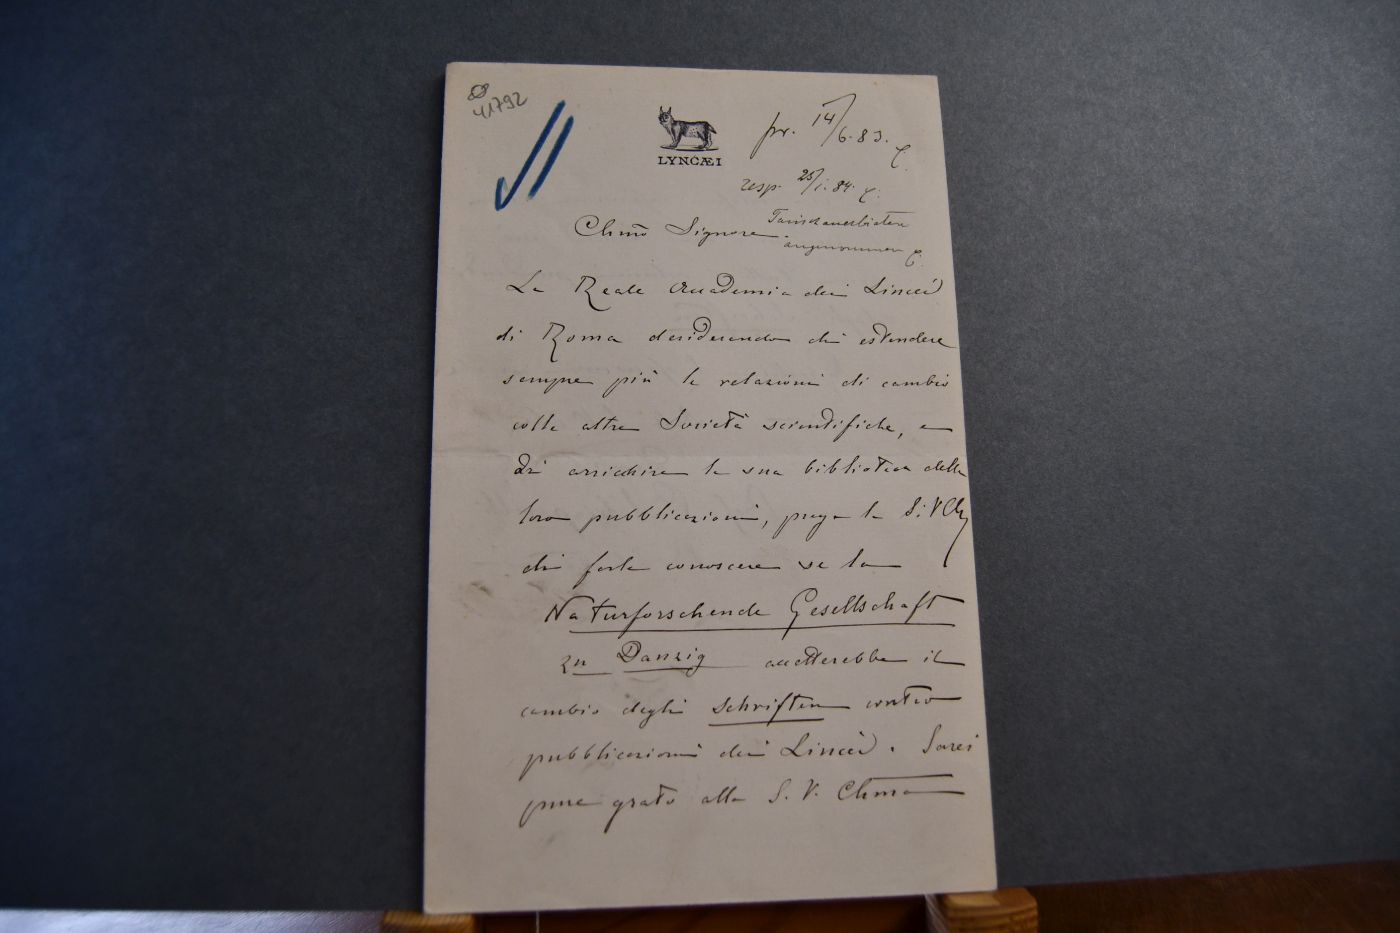 41792
LYNCÆI
pr. 14/6.83.
resp. 25/1.84.
Tauschanerbieten
angenommen
Chmo Signore
La Reale Accademia dei Lincei
di Roma desiderando di estendere
sempre più le relazioni di cambio
colle altre Società scientifiche, e
di arrichire la sua biblioteca delle
loro pubblicazioni, prega la S. V. Ch
di farle conoscere se la
Naturforschende Gesellschaft
zu Danzig accetterebbe il
cambio degli Schriften contro
pubblicazioni dei Lincei. Sarei
pure grato alla S. V. Chma